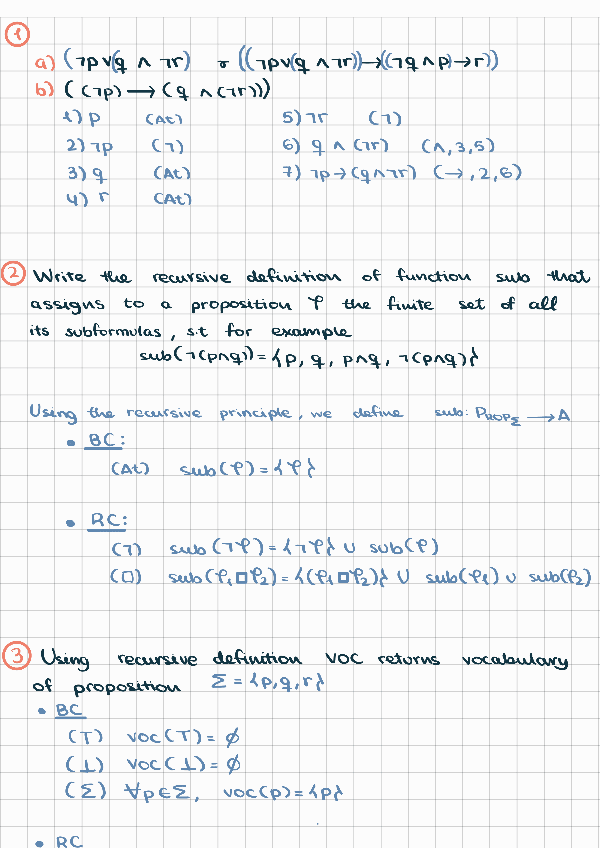 1
a) (¬p∨(q ∧ ¬r) σ ((¬p∨(q∧¬r))→((¬q∧p)→r))
b) ((¬p) → (q ∧(¬r)))
1) p (At) 5) ¬r (¬)
2) ¬p (¬) 6) q ∧ (¬r) (∧,3,5)
3) q (At) 7) ¬p→(q∧¬r) (→,2,6)
4) r (At)
2 Write the recursive definition of function sub that
assigns to a proposition φ the finite set of all
its subformulas, s.t for example
sub(¬(p∧q))={p, q, p∧q, ¬(p∧q)}
Using the recursive principle, we define sub: PROP_Σ → A
• BC:
(At) sub(φ)={φ}
• RC:
(¬) sub(¬φ)={¬φ} ∪ sub(φ)
(□) sub(φ1□φ2)={(φ1□φ2)} ∪ sub(φ1) ∪ sub(φ2)
3 Using recursive definition VOC returns vocabulary
of proposition Σ={p,q,r}
• BC
(⊤) VOC(⊤)=∅
(⊥) VOC(⊥)=∅
(Σ) ∀p∈Σ, VOC(p)={p}
• RC